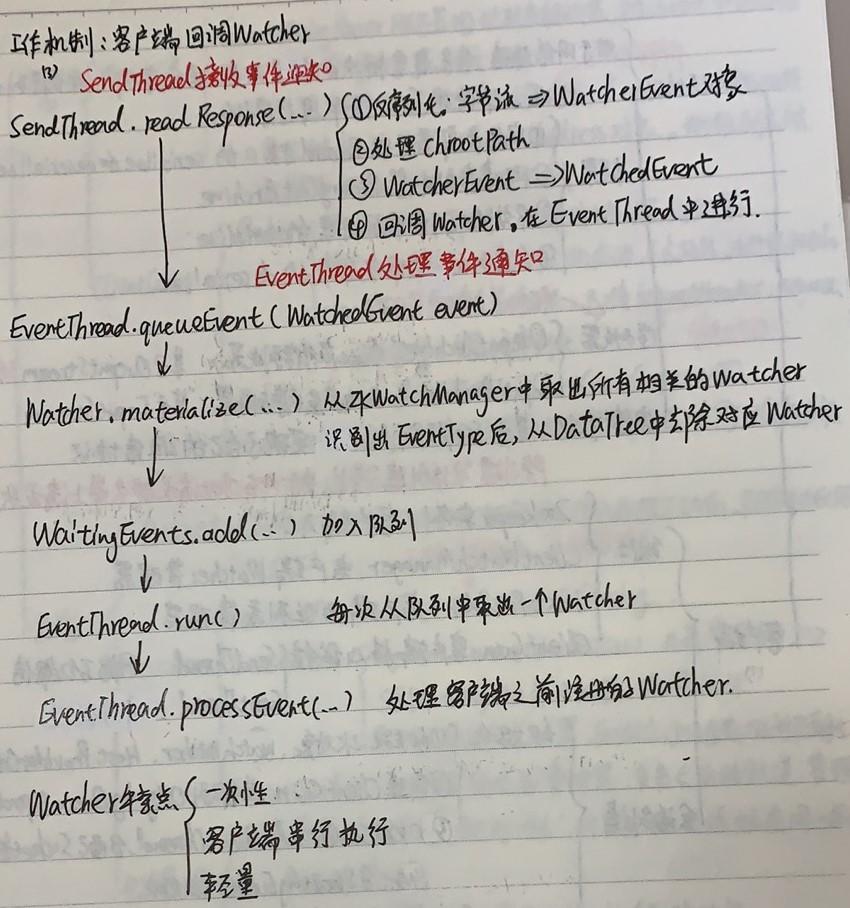 工作机制:客户端回调Watcher
(3) SendThread接收事件通知
SendThread.readResponse(...) ①反序列化:字节流⇒WatcherEvent对象
②处理chrootPath
③WatcherEvent⇒WatchedEvent
④回调Watcher,在EventThread中进行.
EventThread处理事件通知
EventThread.queueEvent(WatchedEvent event)
Watcher.materialize(...) 从ZKWatchManager中取出所有相关的Watcher
识别出EventType后,从DataTree中去除对应Watcher
WaitingEvents.add(...) 加入队列
EventThread.run() 每次从队列中取出一个Watcher
EventThread.processEvent(...) 处理客户端之前注册的Watcher.
Watcher特点 一次性
客户端串行执行
轻量